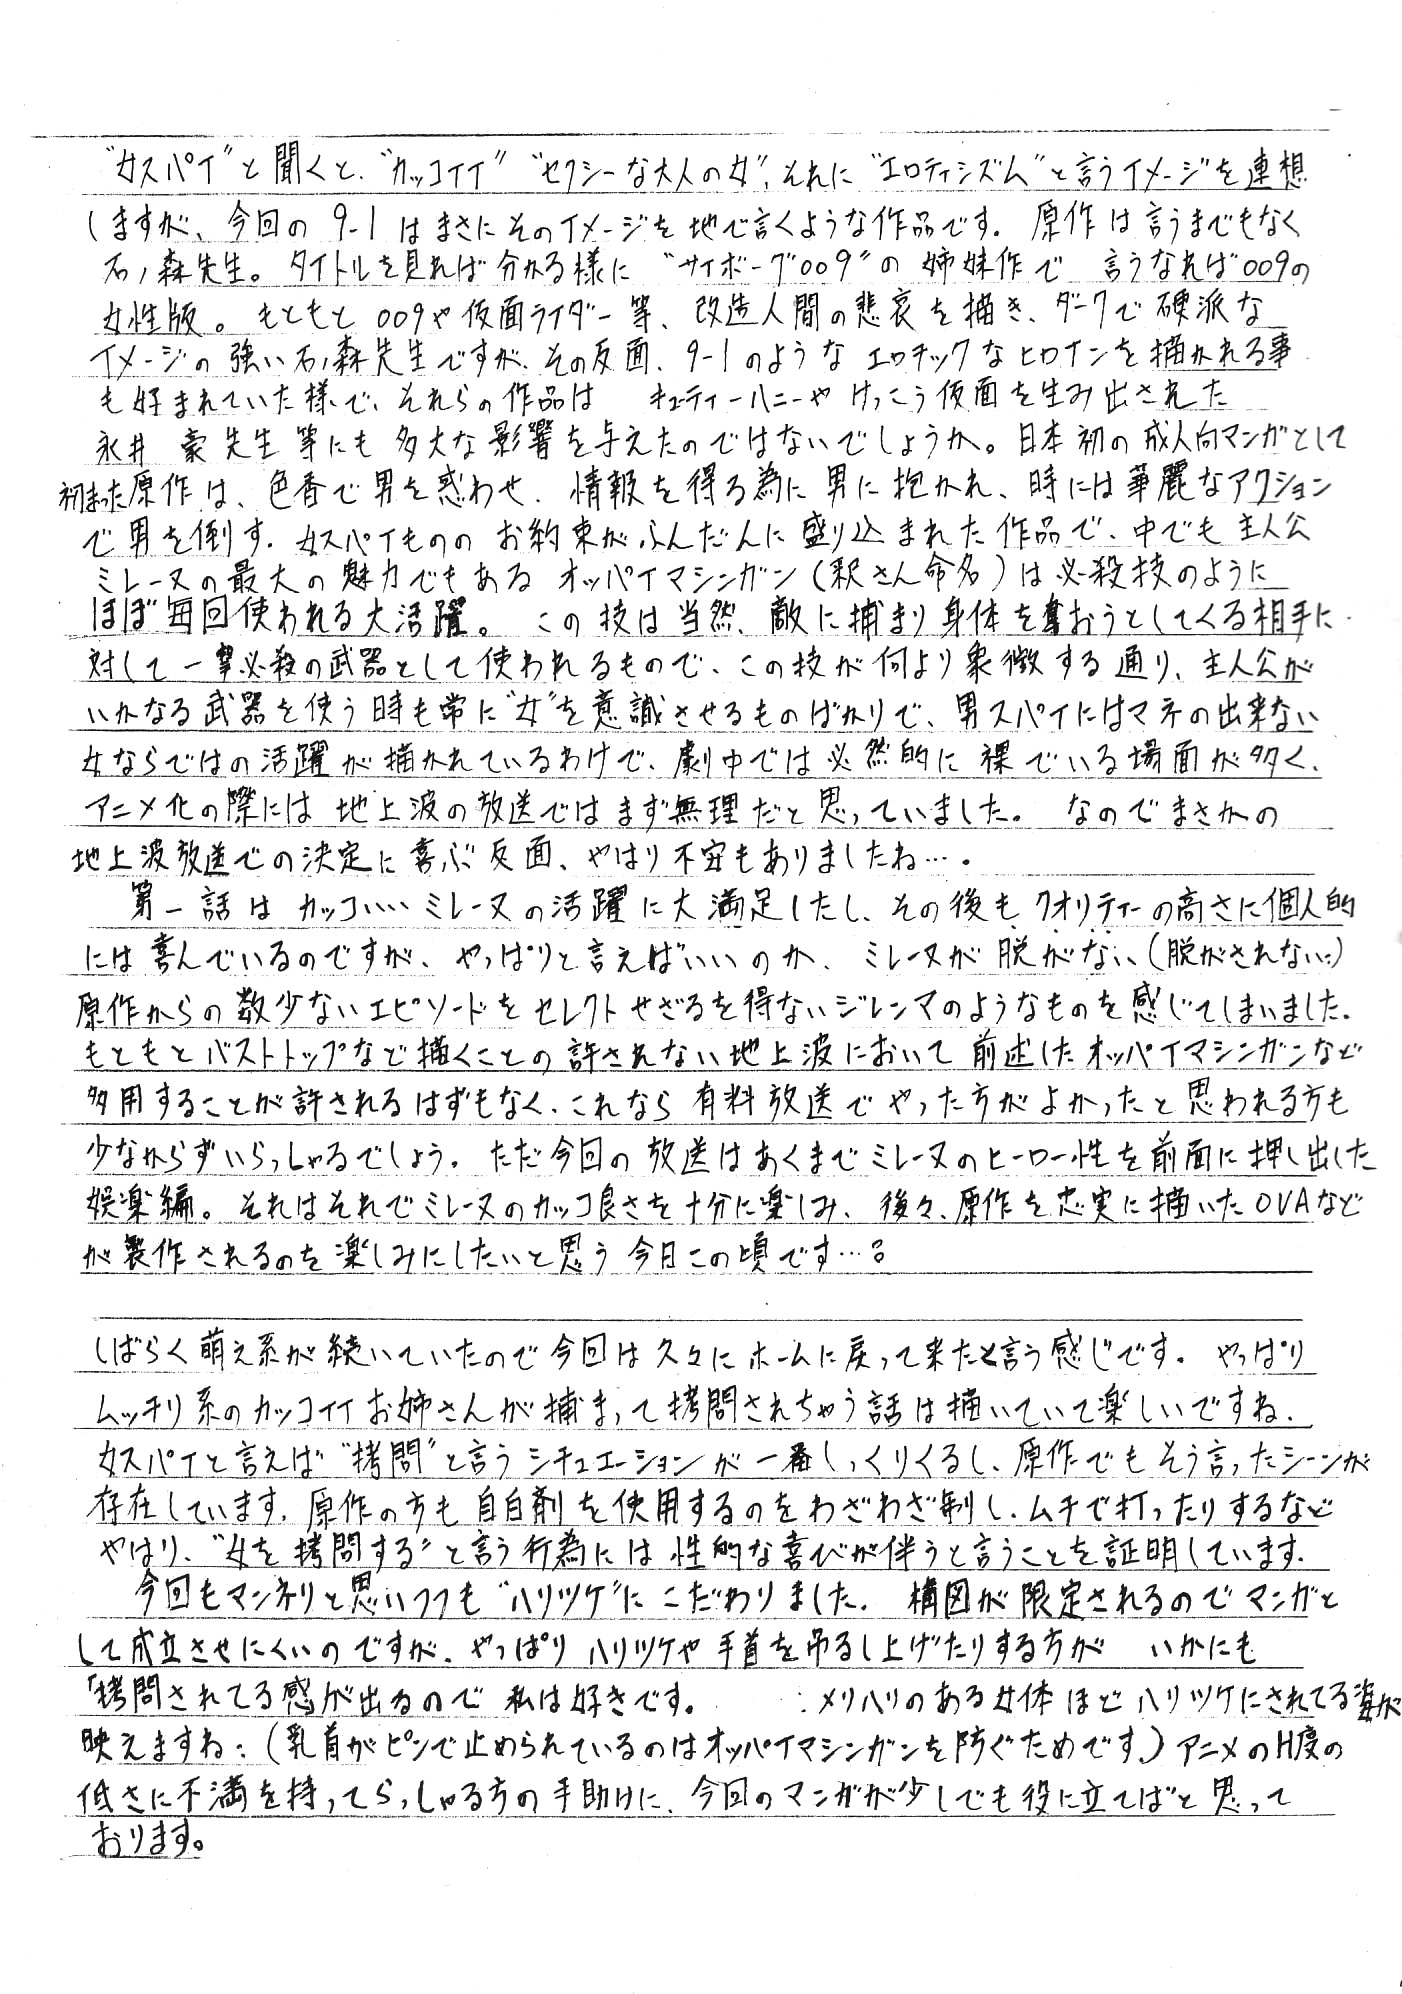 "女スパイ"と聞くと、"カッコイイ" "セクシーな大人の女"、それに"エロティシズム"と言うイメージを連想
しますが、今回の9-1はまさにそのイメージを地で言くような作品です。原作は言うまでもなく
石ノ森先生。タイトルを見れば分かる様に"サイボーグ009"の姉妹作で 言うなれば009の
女性版。もともと009や仮面ライダー等、改造人間の悲哀を描き、ダークで硬派な
イメージの強い石ノ森先生ですが、その反面、9-1のようなエロチックなヒロインを描かれる事
も好まれていた様で、それらの作品は キューティーハニーやけっこう仮面を生み出された
永井 豪先生等にも多大な影響を与えたのではないでしょうか。日本初の成人向マンガとして
初まった原作は、色香で男を惑わせ、情報を得る為に男に抱かれ、時には華麗なアクション
で男を倒す、女スパイもののお約束がふんだんに盛り込まれた作品で、中でも主人公
ミレーヌの最大の魅力でもあるオッパイマシンガン(釈さん命名)は必殺技のように
ほぼ毎回使われる大活躍。この技は当然、敵に捕まり身体を奪おうとしてくる相手に
対して一撃必殺の武器として使われるもので、この技が何より象徴する通り、主人公が
いかなる武器を使う時も常に"女"を意識させるものばかりで、男スパイにはマネの出来ない
女ならではの活躍が描かれているわけで、劇中では必然的に裸でいる場面が多く、
アニメ化の際には地上波の放送ではまず無理だと思っていました。なのでまさかの
地上波放送での決定に喜ぶ反面、やはり不安もありましたね…。
第一話はカッコいいミレーヌの活躍に大満足したし、その後もクオリティーの高さに個人的
には喜んでいるのですが、やっぱりと言えばいいのか、ミレーヌが脱がない(脱がされない)
原作からの数少ないエピソードをセレクトせざるを得ないジレンマのようなものを感じてしまいました。
もともとバストトップなど描くことの許されない地上波において前述したオッパイマシンガンなど
多用することが許されるはずもなく、これなら有料放送でやった方がよかったと思われる方も
少なからずいらっしゃるでしょう。ただ今回の放送はあくまでミレーヌのヒーロー性を前面に押し出した
娯楽編。それはそれでミレーヌのカッコ良さを十分に楽しみ、後々、原作を忠実に描いたOVAなど
が製作されるのを楽しみにしたいと思う今日この頃です…。
しばらく萌え系が続いていたので今回は久々にホームに戻って来たと言う感じです。やっぱり
ムッチリ系のカッコイイお姉さんが捕まって拷問されちゃう話は描いていて楽しいですね。
女スパイと言えば"拷問"と言うシチュエーションが一番しっくりくるし、原作でもそう言ったシーンが
存在しています。原作の方も自白剤を使用するのをわざわざ制し、ムチで打ったりするなど
やはり、"女を拷問する"と言う行為には性的な喜びが伴うと言うことを証明しています。
今回もマンネリと思いつつも"ハリツケ"にこだわりました。構図が限定されるのでマンガと
して成立させにくいのですが、やっぱりハリツケや手首を吊るし上げたりする方が いかにも
「拷問されてる感が出るので私は好きです。 メリハリのある女体ほどハリツケにされてる姿が
映えますね。(乳首がピンで止められているのはオッパイマシンガンを防ぐためです)アニメのH度の
低さに不満を持ってらっしゃる方の手助けに、今回のマンガが少しでも役に立てばと思って
おります。